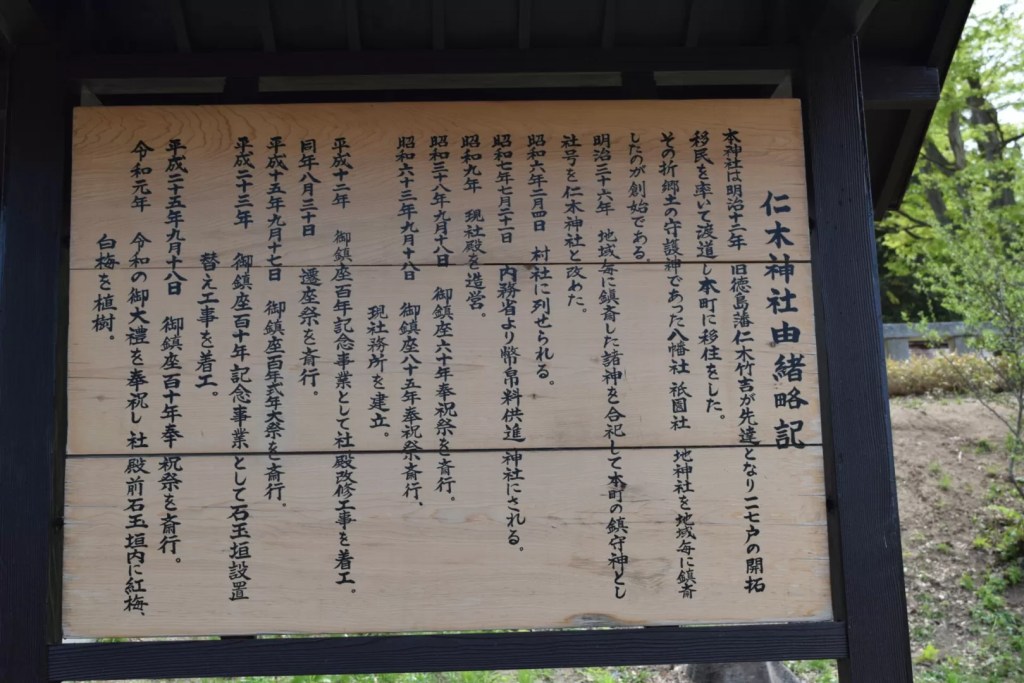 仁木神社由緒略記
本神社は明治十二年 旧徳島藩仁木竹吉が先達となり一一七戸の開拓
移民を率いて渡道し本町に移住をした。
その折郷土の守護神であった八幡社 祇園社 地神社を地域毎に鎮斎
したのが創始である。
明治三十六年 地域毎に鎮斎した諸神を合祀して本町の鎮守神とし
社号を仁木神社と改めた。
昭和六年二月四日 村社に列せられる。
昭和七年七月二十一日 内務省より幣帛料供進神社にされる。
昭和九年 現社殿を造営。
昭和三十八年九月十八日 御鎮座六十年奉祝祭を斎行。
昭和六十三年九月十八日 御鎮座八十五年奉祝祭斎行、
現社務所を建立。
平成十二年 御鎮座百年記念事業として社殿改修工事を着工。
同年八月三十日 遷座祭を斎行。
平成十五年九月十七日 御鎮座百年式年大祭を斎行。
平成二十三年 御鎮座百十年記念事業として石玉垣設置
替え工事を着工。
平成二十五年九月十八日 御鎮座百十年奉祝祭を斎行。
令和元年 令和の御大禮を奉祝し社殿前石玉垣内に紅梅、
白梅を植樹。